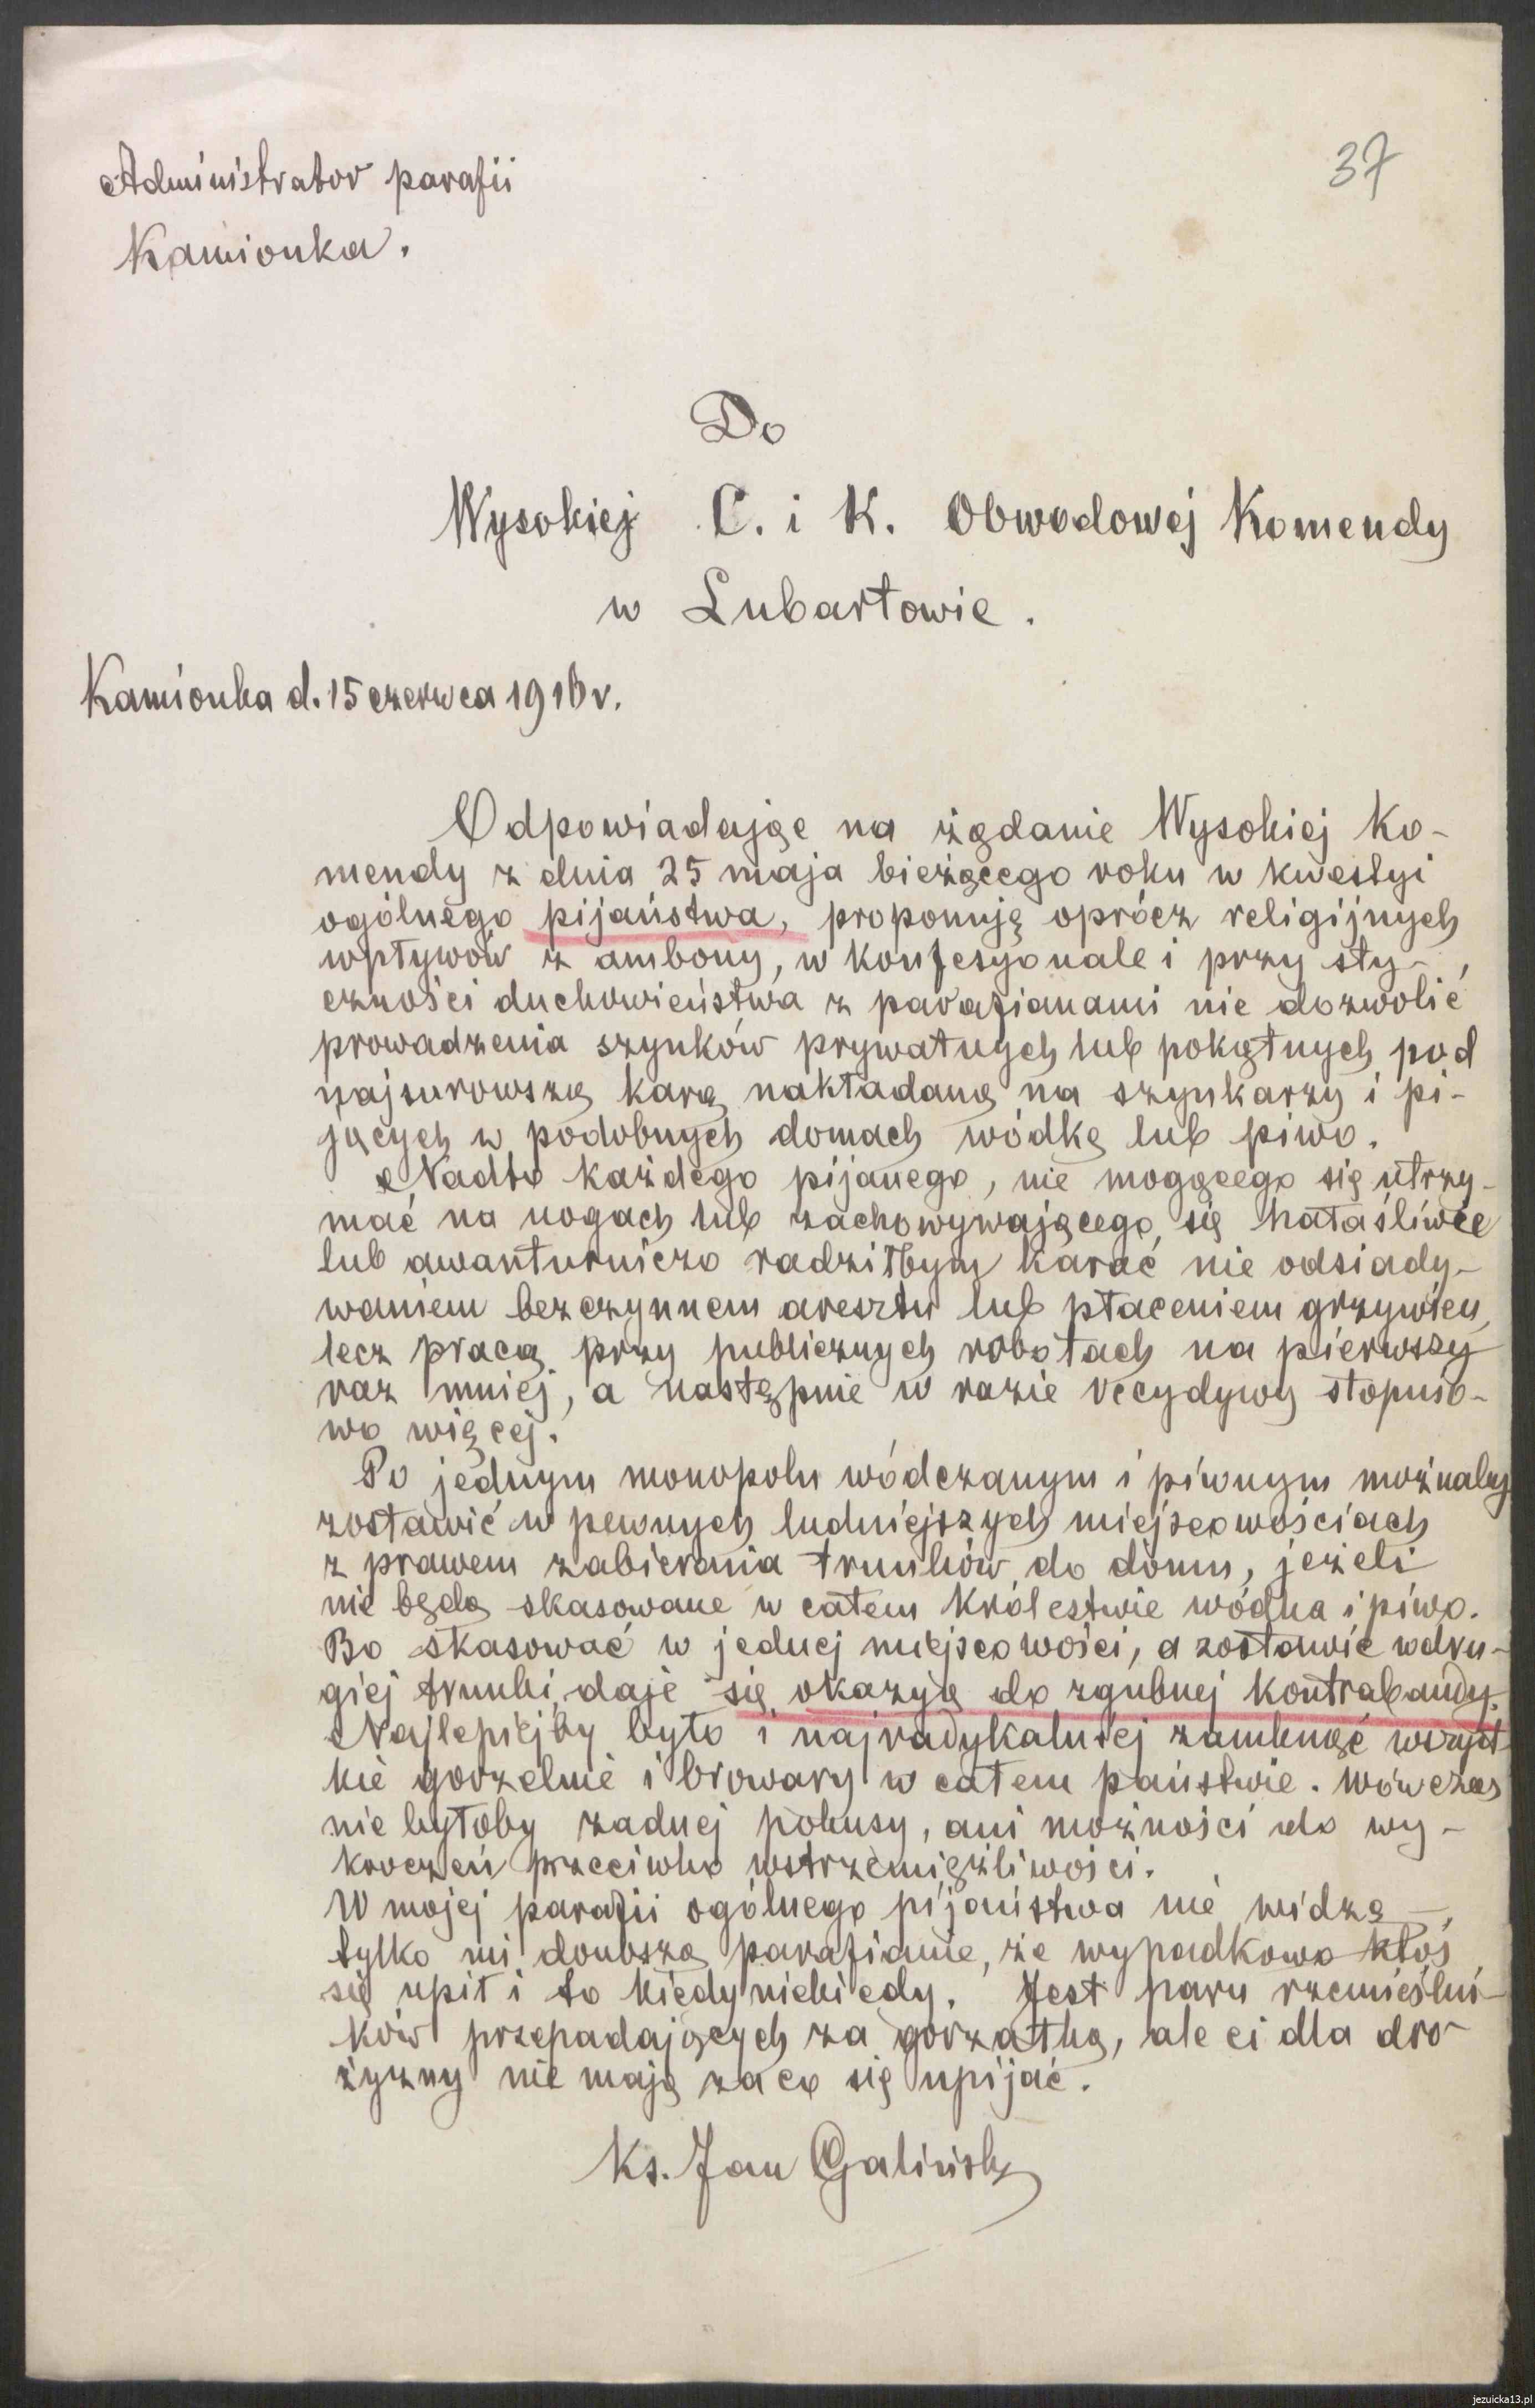 37
Administrator parafii
Kamionka.
Do
Wysokiej C. i K. Obwodowej Komendy
w Lubartowie.
Kamionka d. 15 czerwca 1916 r.
Odpowiadając na żądanie Wysokiej Ko-
mendy z dnia 25 maja bieżącego roku w kwestyi
ogólnego pijaństwa, proponuję oprócz religijnych
wpływów z ambony, w konfesyonale i przy sty-
czności duchowieństwa z parafianami nie dozwolić
prowadzenia szynków prywatnych lub pokątnych pod
najsurowszą karą nakładaną na szynkarzy i pi-
jących w podobnych domach wódkę lub piwo.
Nadto każdego pijanego, nie mogącego się utrzy-
mać na nogach lub zachowywającego się hałaśliwie
lub awanturniczo radziłbym karać nie odsiady-
waniem bezczynnem aresztu lub płaceniem grzywien,
lecz pracą przy publicznych robotach na pierwszy
raz mniej, a następnie w razie recydywy stopnio-
wo więcej.
Po jednym monopolu wódczanym i piwnym możnaby
zostawić w pewnych ludniejszych miejscowościach
z prawem zabierania trunków do domu, jeżeli
nie będą skasowane w całem Królestwie wódka i piwo.
Bo skasować w jednej miejscowości, a zostawić w dru-
giej trunki, daje się okazyę do zgubnej kontrabandy.
Najlepiejby było i najradykalniej zamknąć wszyst-
kie gorzelnie i browary w całem państwie. Wówczas
nie byłoby żadnej pokusy, ani możności do wy-
kroczeń przeciwko wstrzemięźliwości.
W mojej parafii ogólnego pijaństwa nie widzę –,
tylko mi donoszą parafianie, że wypadkowo ktoś
się upił i to kiedyniekiedy. Jest paru rzemieślni-
ków przepadających za gorzałką, ale ci dla dro-
żyzny nie mają za co się upijać.
Ks. Jan Galiński
jezuicka13.pl